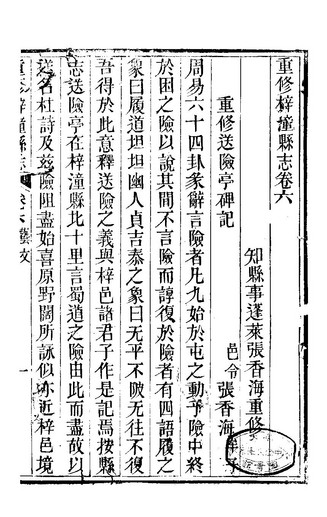 重修梓潼縣志卷六
知縣事蓬萊張香海重修
重修送險亭碑記
邑令張香海
周易六十四卦彖辭言險者凡九始於屯之動乎險中終
於困之險以說其間不言險而諄復於險者有四語履之
象曰履道坦坦幽人貞吉泰之象曰无平不陂无往不復
吾得於此意釋送險之義與梓邑諸君子作是記焉按縣
志送險亭在梓潼縣北十里言蜀道之險由此而盡故以
送名杜詩及茲險阻盡始喜原野闊所詠似亦近梓邑境
重修梓潼縣志
卷六
藝文
一